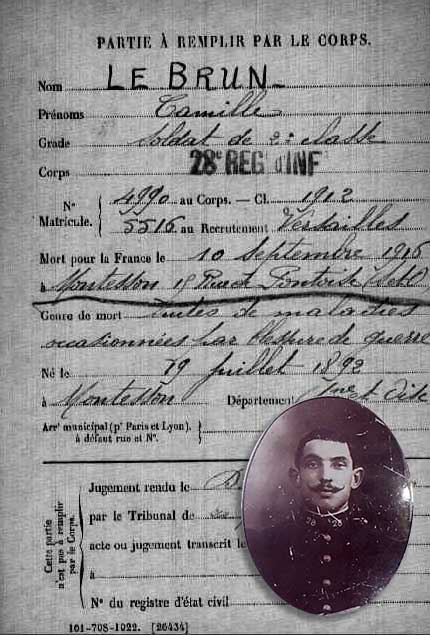 PARTIE À REMPLIR PAR LE CORPS.
Nom LE BRUN
Prénoms Camille
Grade soldat de 2e classe
Corps 28e REG d'INF
N° Matricule. { 4990 au Corps. — Cl. 1912
5516 au Recrutement Versailles
Mort pour la France le 10 Septembre 1916
à Montesson 15 Rue de Pontoise (S et O)
Genre de mort Suites de maladies
occasionnées par blessure de guerre
Né le 19 juillet 1892
à Montesson Département Seine et Oise
Arrt municipal (pr Paris et Lyon), à défaut rue et N°. }
Cette partie n'est pas à remplir par le Corps.
Jugement rendu le
par le Tribunal de
acte ou jugement transcrit le
à
N° du registre d'état civil
101-708-1022. [26434]
28 28